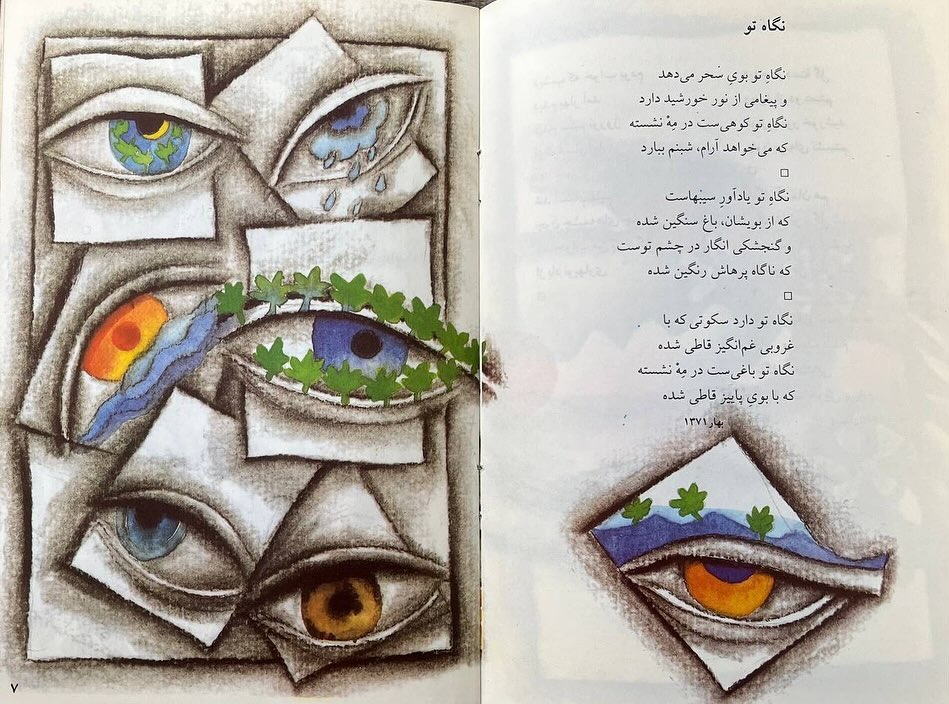 نگاه تو
نگاهِ تو بویِ سَحر می‌دهد
و پیغامی از نور خورشید دارد
نگاهِ تو کوهی‌ست در مِهْ نشسته
که می‌خواهد آرام، شبنم ببارد
نگاهِ تو یادآورِ سیبهاست
که از بویشان، باغ سنگین شده
و گنجشکی انگار در چشم توست
که ناگاه پرهاش رنگین شده
نگاه تو دارد سکوتی که با
غروبی غم‌انگیز قاطی شده
نگاه تو باغی‌ست در مِهْ نشسته
که با بویِ پاییز قاطی شده
بهار ۱۳۷۱
۷